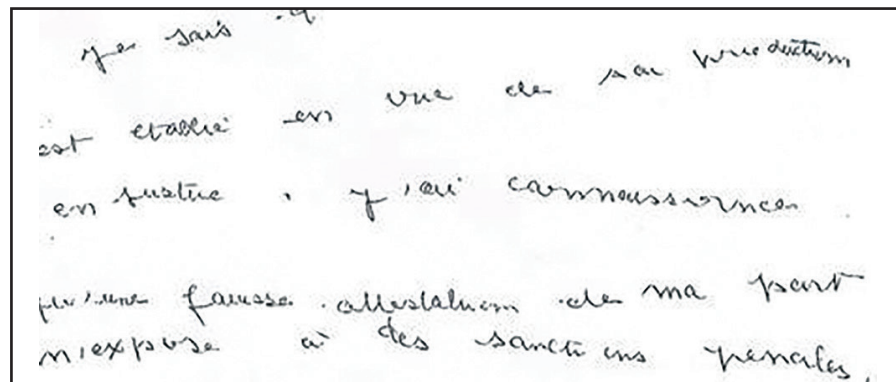 je sais q
est etablie en vue de sa production
en justice, j'ai connaissance
qu'une fausse attestation de ma part
m'expose à des sanctions penales,